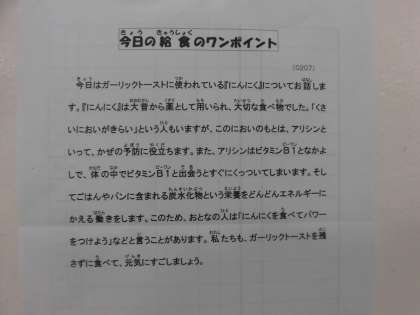 今日の給食のワンポイント
(0207)
今日はガーリックトーストに使われている『にんにく』についてお話しま
す。『にんにく』は大昔から薬として用いられ、大切な食べ物でした。「くさ
いにおいがきらい」という人もいますが、このにおいのもとは、アリシンと
いって、かぜの予防に役立ちます。また、アリシンはビタミンB1となかよ
しで、体の中でビタミンB1と出会うとすぐにくっついてしまいます。そし
てごはんやパンに含まれる炭水化物という栄養をどんどんエネルギーに
かえる働きをします。このため、おとなの人は「にんにくを食べてパワー
をつけよう」などと言うことがあります。私たちも、ガーリックトーストを残
さずに食べて、元気にすごしましょう。